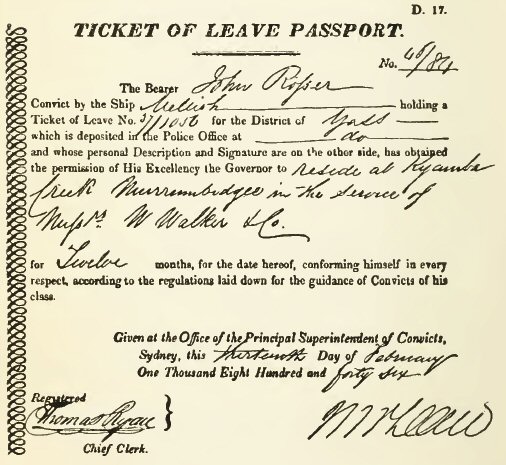 D. 17.
TICKET OF LEAVE PASSPORT.
No. 46/84
The Bearer John Rosser
Convict by the Ship Mellish holding a
Ticket of Leave No. 37/1056 for the District of Yass
which is deposited in the Police Office at do
and whose personal Description and Signature are on the other side, has obtained
the permission of His Excellency the Governor to reside at Kyamba
Creek Murrumbidgee in the service of
Messrs. W Walker & Co.
for Twelve months, for the date hereof, conforming himself in every
respect, according to the regulations laid down for the guidance of Convicts of his
class.
Given at the Office of the Principal Superintendent of Convicts,
Sydney, this thirteenth Day of February
One Thousand Eight Hundred and forty six
Registered
Thomas Ryan }
Chief Clerk.